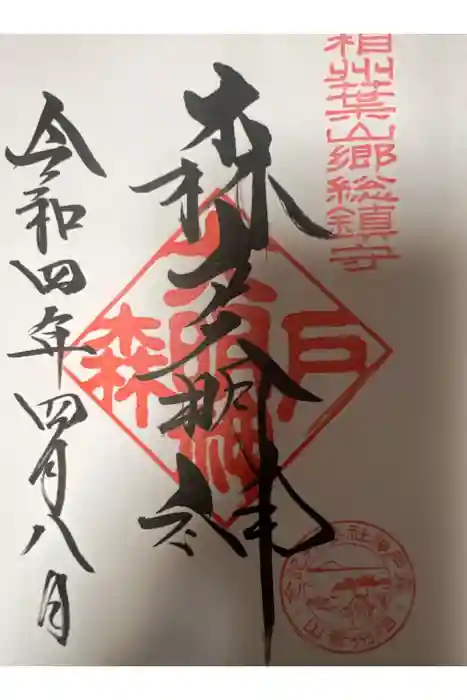 相州葉山郷総鎮守
森戸大明神
森戸
大明神
令和四年四月八日